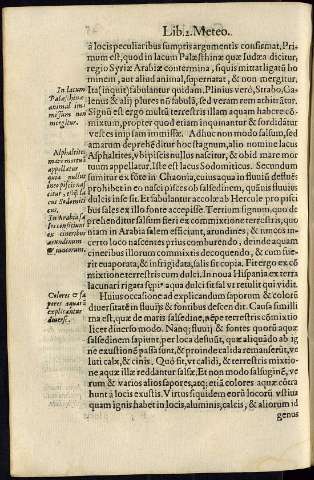 Lib. 2. Meteo.
à locis peculiaribus sumptis argumentis confirmat, Pri
mum est, quod in lacum Palæsthinæ quæ Iudæa dicitur,
regio Syriæ Arabiæ contermina, siquis mittat ligatũ ho
minem, aut aliud animal, supernatat, & non mergitur.
Ita (inquit) fabulantur quidam, Plinius verò, Strabo, Ca-
lenus & alij plures nõ fabulã, sed veram rem arbitrãtur.
Signũ est ergo multũ terrestris illam aquam habere cõ
mixtum, propter quod etiam inquinantur & sordidãtur
vestes in ipsam immissæ. Adhuc non modo salsum, sed
amarum deprehẽditur hoc stagnum, alio nomine lacus
Asphaltites, vbi piscis nullus nascitur, & obid mare mor
tuum appellatur. Iste est lacus Sodomiticus. Secundum
sumit ex fõte in Chaonia, cuius aqua in fluuiũ deflués
prohibet in eo nasci pisces ob salsedinem, quãuis fluuius
dulcis inse sit. Et fabulantur accolæ ab Hercule pro pisci
bus sales ex illo fonte accepisse. Tertium signum, quo de
prehẽditur salsum fieri ex commixtione terrestris, quo
niam in Arabia salem efficiunt, arundines, & iuncos in
certo loco nascentes prius comburendo, deinde aquam
cineribus illorum commixtis decoquendo, & cum fue-
rit euaporata, & infrigidata, salis fit copia. Fit ergo ex cõ
mixtione terrestris cum dulci. In noua Hispania ex terra
lacunari rigata sępi⁹ aqua dulci fit sal vt retulit qui vidit.
Huius occasione ad explicandum saporum & colorũ
diuersitatẽ in fluuijs & fontibus descendit. Causa simili
ma est, quæ de maris salsedine, nẽpe terrestris cõmixtio
licet diuerso modo. Nanq; fluuij & fontes quorũ aquæ
salsedinem sapiunt, per loca defluũt, quæ aliquãdo ab ig
ne exustionẽ passa sunt, & proinde calida remãserũt, ve
luti calx, & cinis. Quò fit, vt calidi, & terrestris commixtio
ne aquæ illæ reddantur salsæ. Et non modo salsuginẽ, ve
rum & varios alios sapores, atq; etiã colores aquæ cõtra
hunt à locis exustis. Virtus siquidem eorũ locorũ vstiua
quam ignis habet in locis, aluminis, calcis, & aliorum id
genus
In lacum
Palæsthinæ
animal im-
missum non
mergitur.
Asphaltites
mare mortuũ
appellatur
quia nullus
ineo piscis nas
citur, est q̃ la
cus Sodomiti
cus.
In Arabia sal
efficiunt
ex cineribus
arundinum
& iuncorum.
Colores & sa
pores aquarũ
explicantur
diuersi.